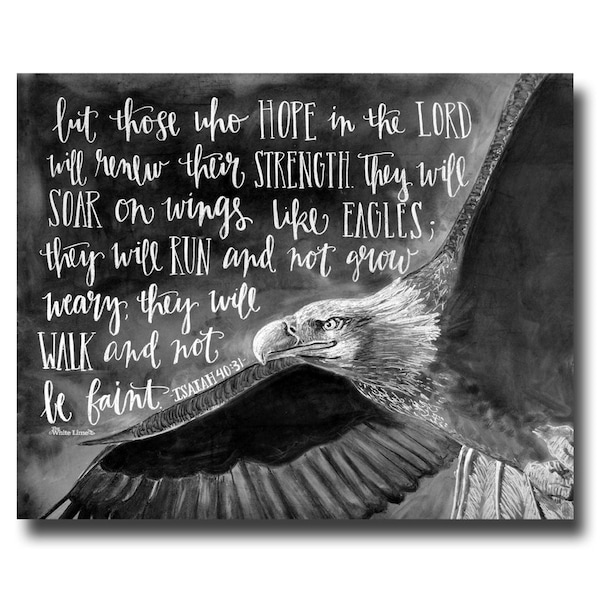 but those who HOPE in the LORD
will renew their STRENGTH. They will
SOAR on wings like EAGLES;
they will RUN and not grow
weary, they will
WALK and not
be faint. -ISAIAH 40:31-
White Lime